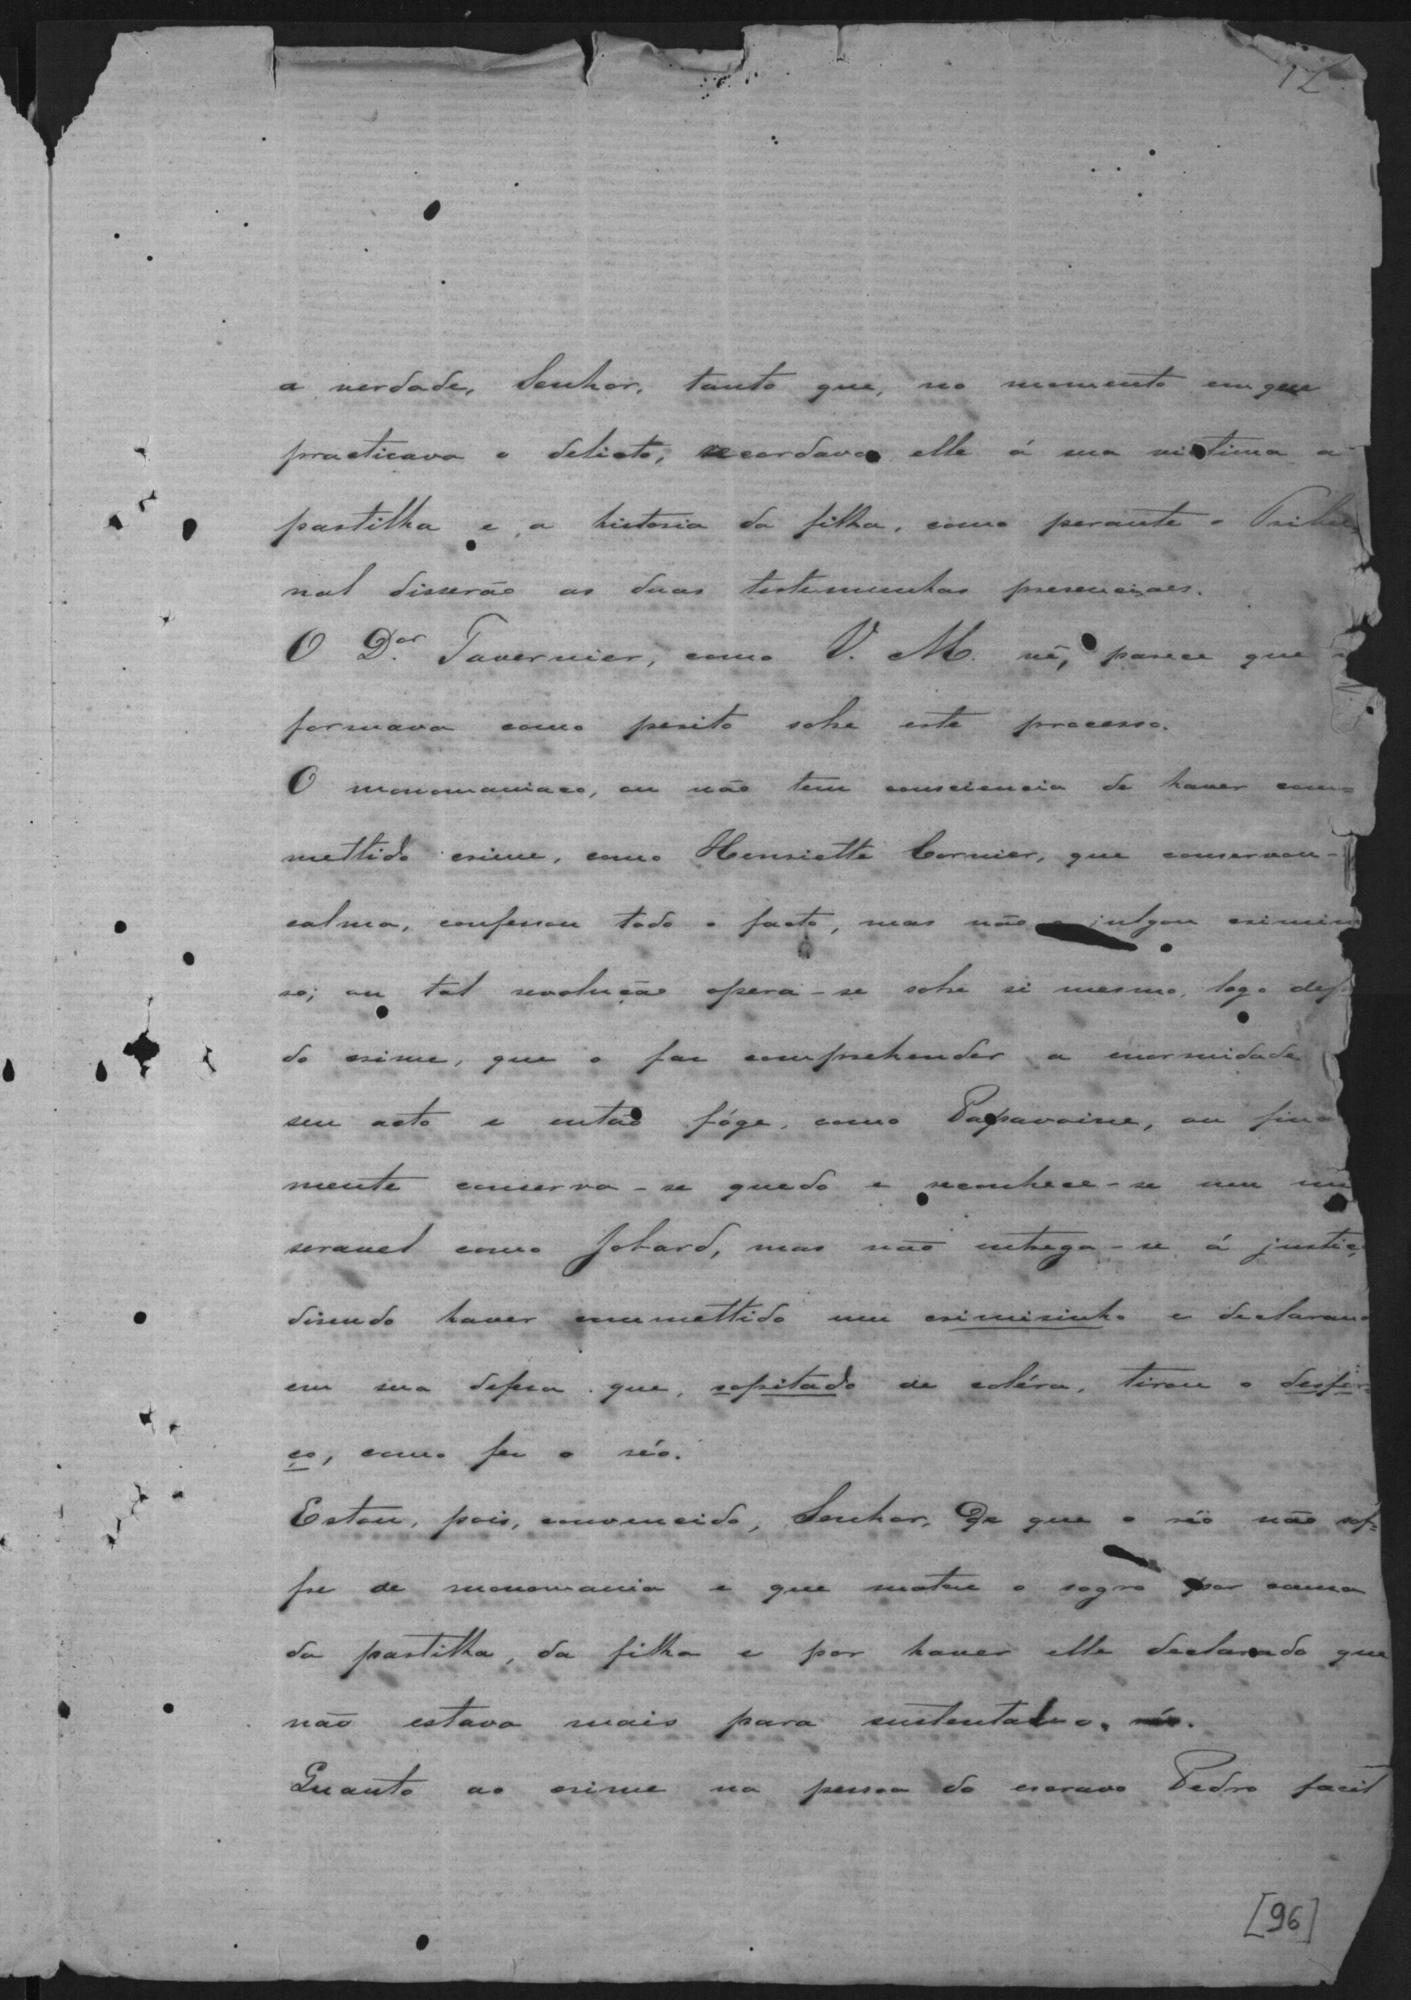 12
a verdade, Senhor, tanto que, no momento em que
practicava o delicto, recordava elle á sua victima a
partilha e a historia da filha, como perante o Tribu
nal disserão as duas testemunhas presenciaes.
O Dor. Tavernier, como V. M. vê, parece que
formava como perito sobre este processo.
O monomaniaco, ou não tem consciencia de haver com
mettido crime, como Henriette Cornier, que conservou-
calma, confessou todo o facto, mas não se julgou crimino
so; ou tal revolução opera-se sobre si mesmo, logo dep
do crime, que o faz comprehender a enormidade
seu acto e então fóge, como Papavoine, ou fina
mente conserva-se quedo e reconhece-se um mi
seravel como Jobard, mas não entrega-se á justiç
disendo haver commettido um crimisinho e declaran
em sua defesa que, sopitado de coléra, tirou o desfor
ço, como fez o réo.
Estou, pois, convencido, Senhor, de que o réo não sof-
fre de monomania e que matou o sogro por causa
da partilha, da filha e por haver elle declarado que
não estava mais para sustental-o.
Quanto ao crime na pessoa do escravo Pedro facil
[96]